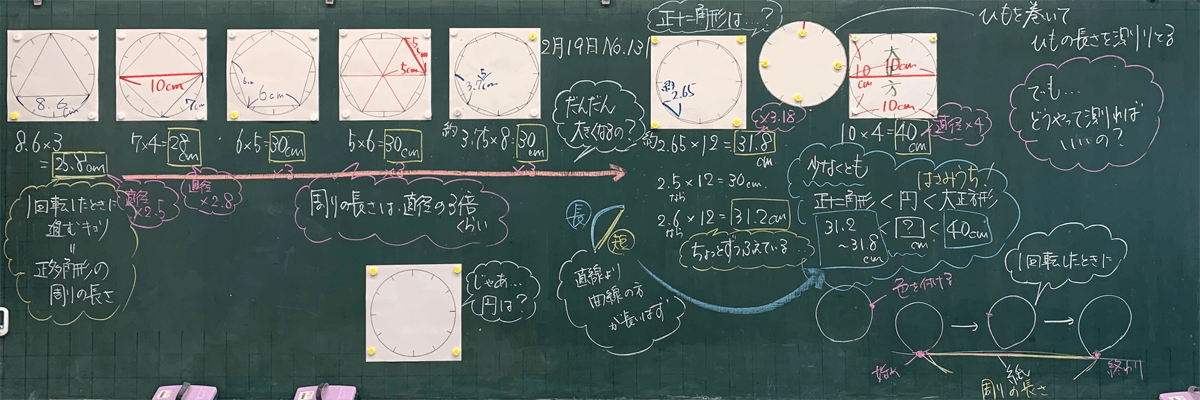 2月19日 No.13
8.6cm
8.6×3
=25.8cm
直径×2.5
10cm
7cm
7×4=28cm
直径×2.8
6cm
6cm
6×5=30cm
×3
5cm
5cm
5×6=30cm
×3
3.75cm
約3.75×8=30cm
×3
1回転したときに
進むキョリ
=
正多角形の
周りの長さ
周りの長さは、直径の3倍
くらい
だんだん
大きくなるの?
じゃあ…
円は?
長
短
直線より
曲線の方
が長いはず
正十二角形は…?
約2.65
×3.18
約2.65×12=31.8cm
2.5×12=30cm
なら
2.6×12=31.2cm
なら
ちょっとずつふえている
ひもを巻いて
ひもの長さを測りとる
大正方
10cm
10cm
10cm
10×4=40cm
直径×4
でも…
どうやって測れば
いいの?
少なくとも
はさみうち!
正十二角形<円<大正方形
31.2
~31.8cm
<?cm<40cm
色を付ける
1回転したときに
始め
紙
終わり
周りの長さ